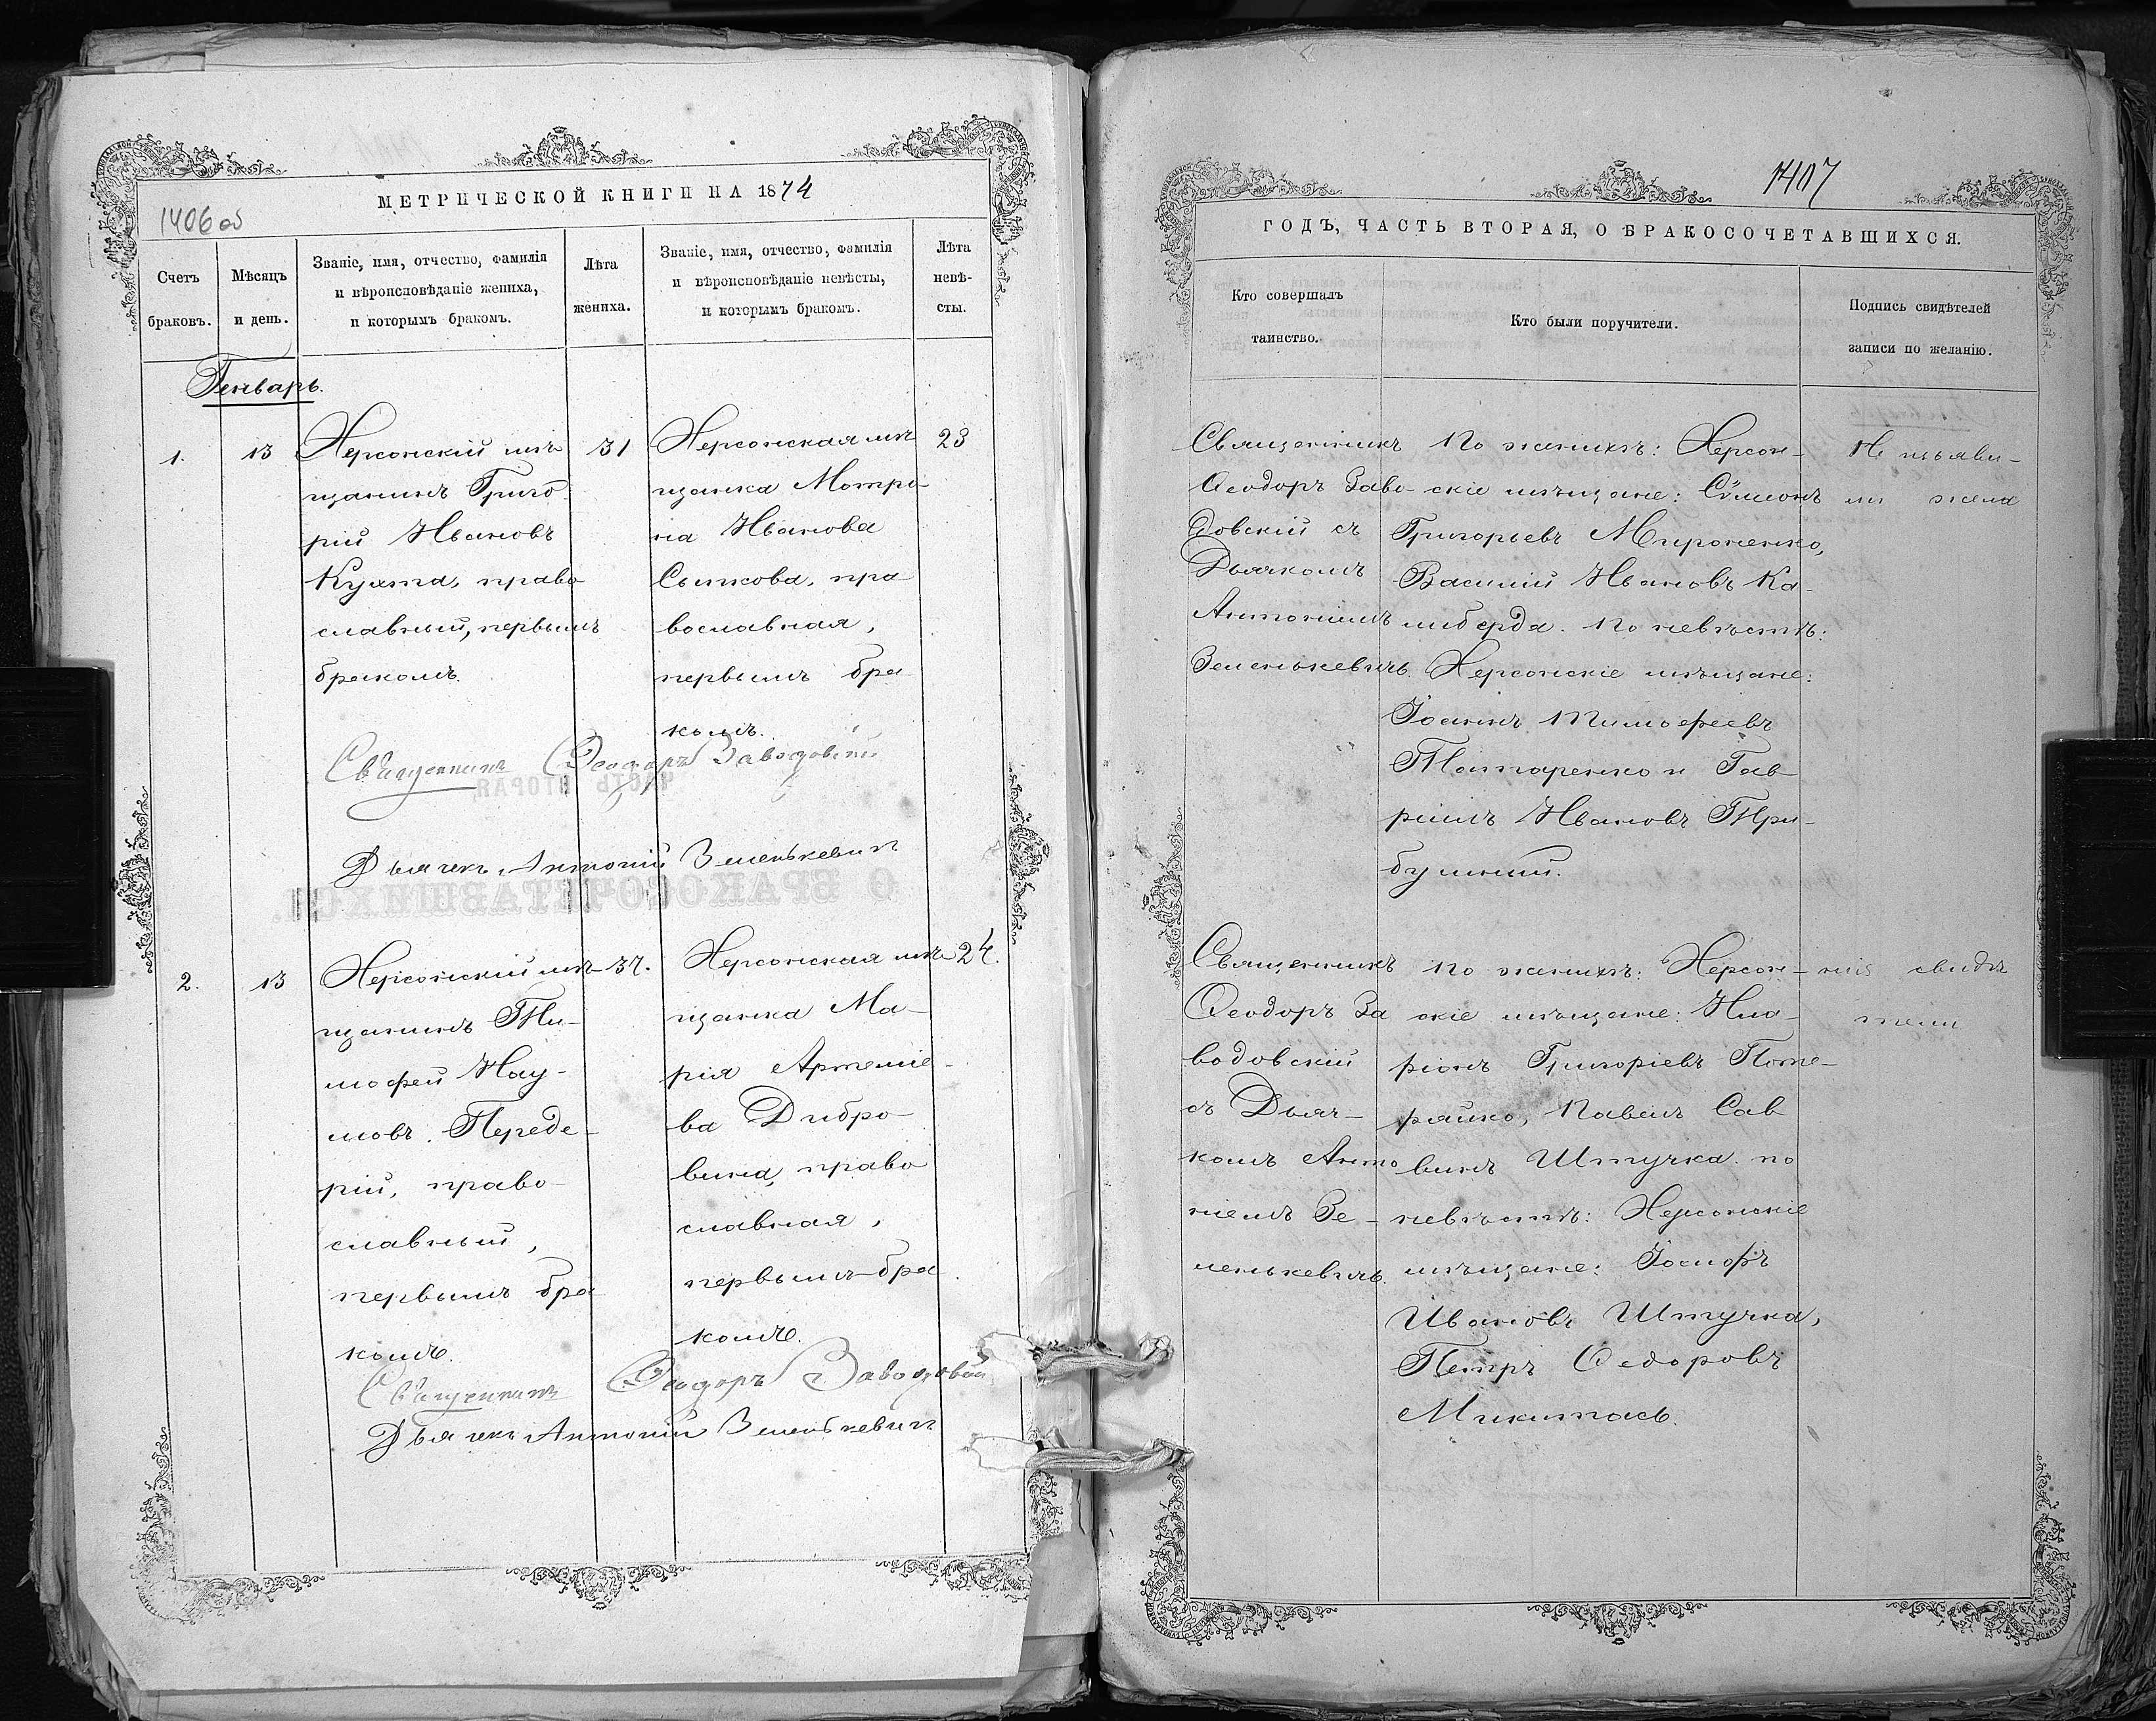 МЕТРИЧЕСКОЙ КНИГИ НА 1874
1406 об
Счетъ
браковъ.
Мѣсяцъ
и день.
Званіе, имя, отчество, фамилія
и вѣроисповѣданіе жениха,
и которымъ бракомъ.
Лѣта
жениха.
Званіе, имя, отчество, фамилія
и вѣроисповѣданіе невѣсты,
и которымъ бракомъ.
Лѣта
невѣ-
сты.
Генварь.
1.
13
Херсонскій мѣ
щанинъ Григо-
рій Ивановъ
Кухта, право
славный, первымъ
бракомъ.
31
Херсонская мѣ
щанка Матро-
на Иванова
Сычкова, пра
вославная,
первымъ бра
комъ.
23
Священникъ Ѳеодоръ Заводовскій
Дьячекъ Антоній Зеленькевичъ
2.
13
Херсонскій мѣ
щанинъ Ти-
мофей Нау-
мовъ Переде-
рій, право-
славный,
первымъ бра
комъ.
37.
Херсонская мѣ
щанка Ма-
рія Артеміе-
ва Дибро-
вина, право
славная,
первымъ бра
комъ.
24.
Священникъ Ѳеодоръ Заводовскій
Дьячекъ Антоній Зеленькевичъ
1407
ГОДЪ, ЧАСТЬ ВТОРАЯ, О БРАКОСОЧЕТАВШИХСЯ.
Кто совершалъ
таинство.
Кто были поручители.
Подпись свидѣтелей
записи по желанію.
Священникъ
Ѳеодоръ Заво-
довскій съ
Дьячкомъ
Антоніемъ
Зеленькевичъ.
По женихѣ: Херсон-
скіе мѣщане: Сѵмеонъ
Григорьевъ Мироненко,
Василій Ивановъ Ка-
либерда. По невѣстѣ:
Херсонскіе мѣщане:
Іоаннъ Тимофеевъ
Татаренко и Гав-
ріилъ Ивановъ Три-
бушный.
Не изъяви-
ли жела
Священникъ
Ѳеодоръ За
водовскій
съ Дьяч-
комъ Анто
ніемъ Зе-
ленькевичъ.
По женихѣ: Херсон-
скіе мѣщане: Ила-
ріонъ Григоріевъ Поте-
ряйко, Павелъ Сав
винъ Штучка. по
невѣстѣ: Херсонскіе
мѣщане: Іосифъ
Ивановъ Штучка,
Петръ Ѳедоровъ
Микитась.
нія свидѣ
тели